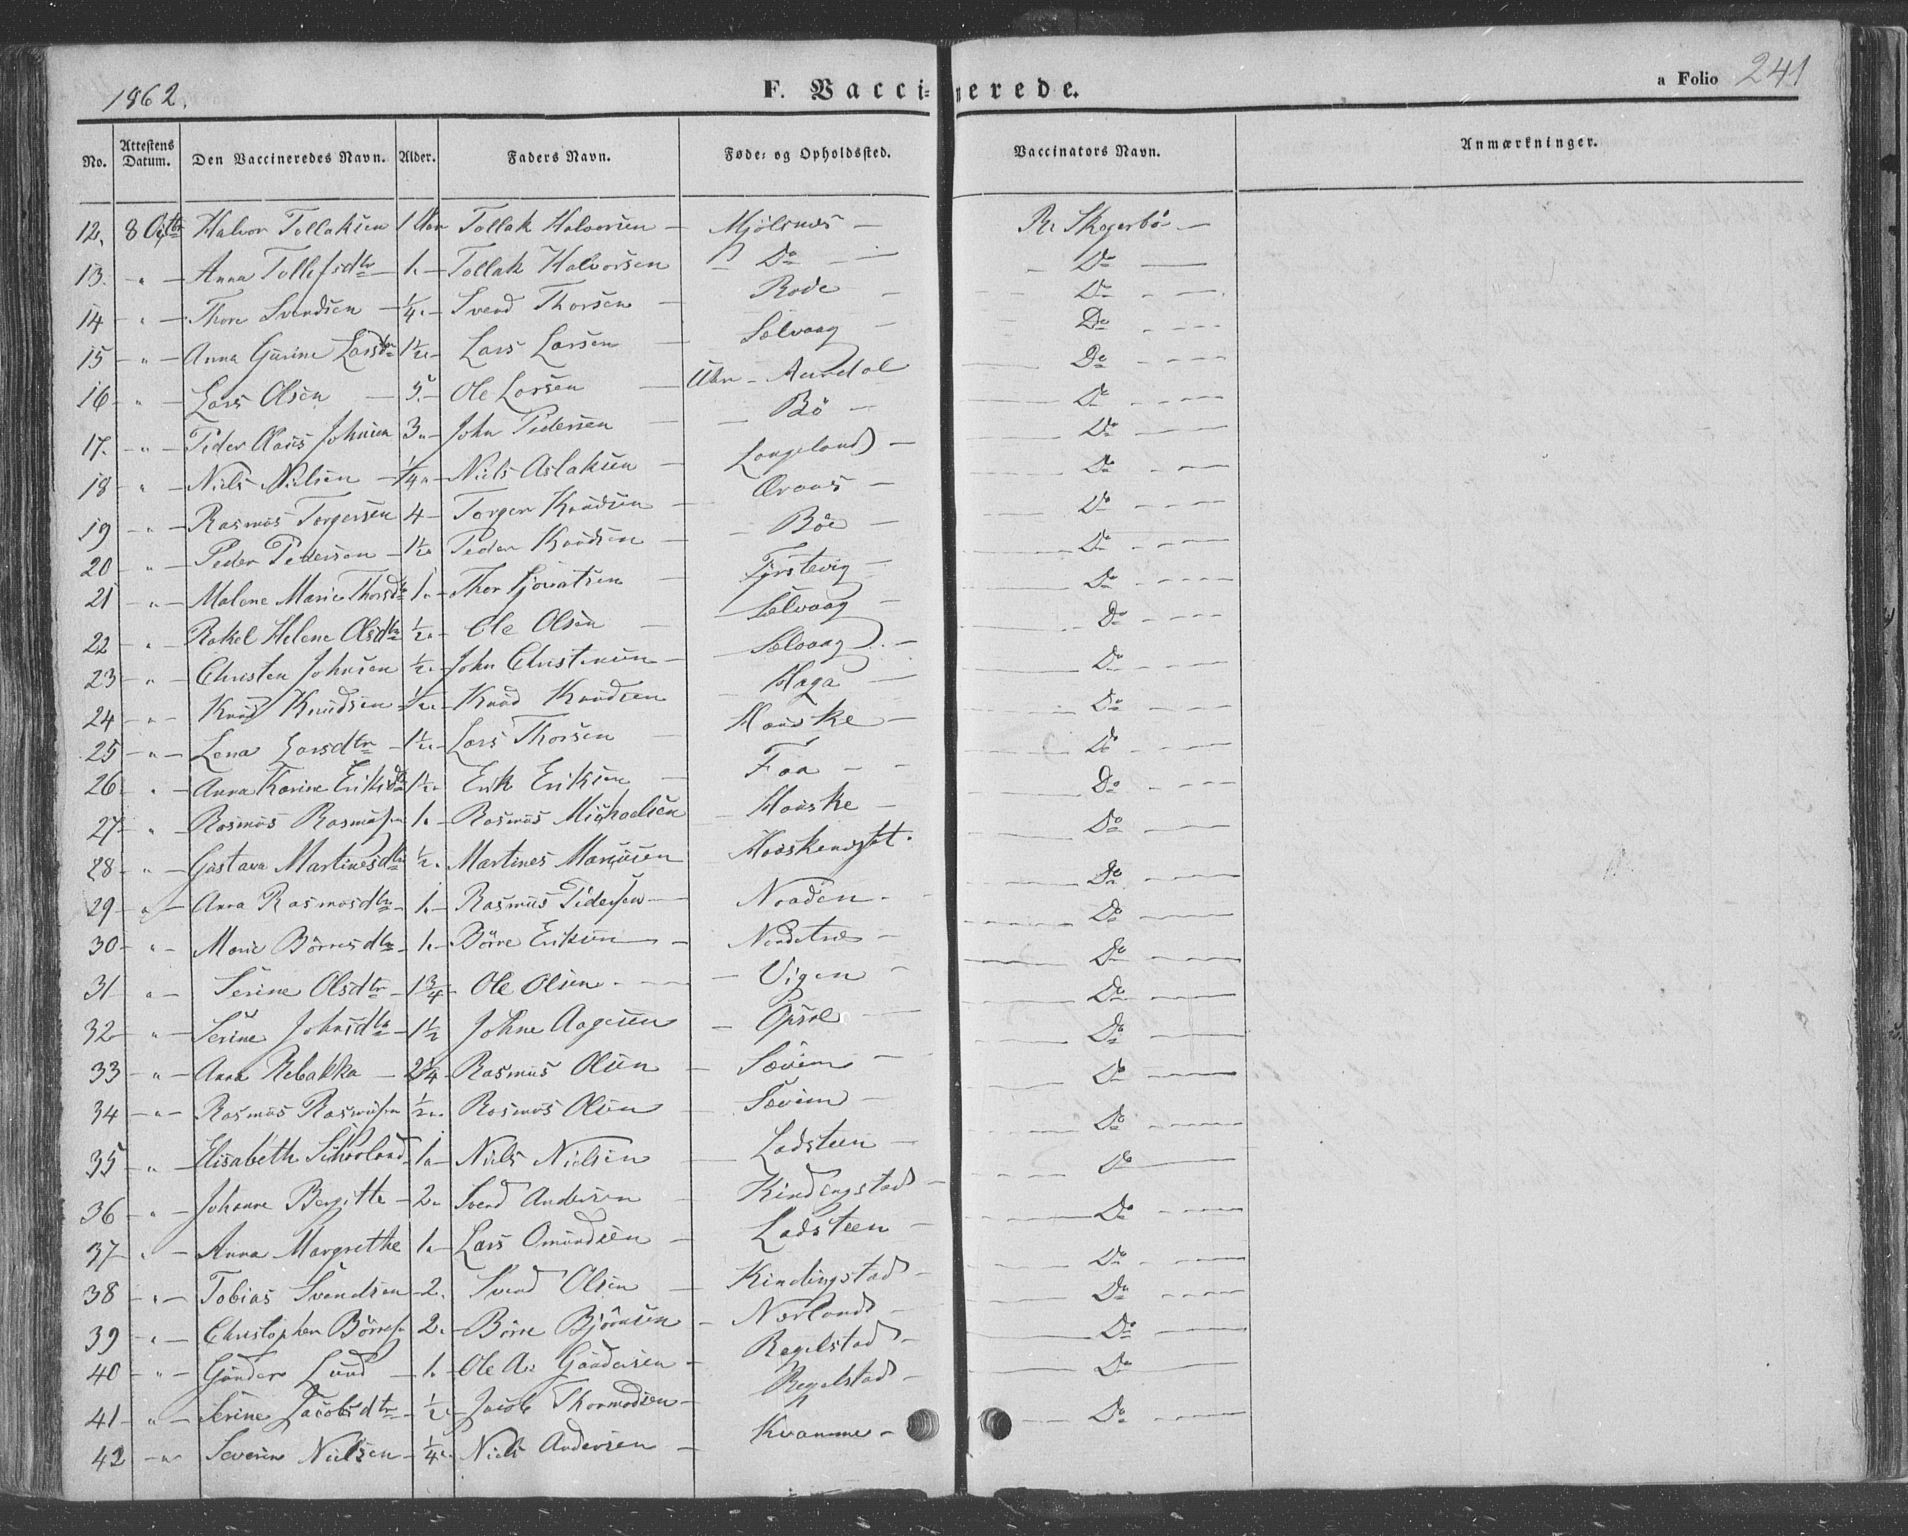 1862.
F. Vaccinerede.
a Folio 241
No. Attestens Datum. Den Vaccineredes Navn. Alder. Faders Navn. Føde- og Opholdssted. Vaccinators Navn. Anmærkninger.
12. 8 Octbr Halvor Tollaksen 1 Aar Tollak Halvorsen – Mjölsnes – R. Skogerbö –
13. " – Anna Tollefsdtr 1. – Tollak Halvorsen – Do – Do –
14 " – Thore Svendsen – 1/4. – Svend Thorsen – Rode – Do –
15 " – Anna Gurine Larsdtr 1 1/2. – Lars Larsen – Selvaag – Do –
16 – " – Lars Olsen – 5. – Ole Larsen – Aardal – Do –
17. – " – Peder Olaus Johnsen 3. – John Pedersen – Bö – Do –
18 – " – Niels Nielsen – 1/4. – Niels Aslaksen – Langeland – Do –
19 – " – Rasmus Torgersen 4 – Torger Knudsen – – Do –
20 – " – Peder Pedersen – 1 1/2. Peder Knudsen – Böe – Do –
21 " – Malene Marie Thorsdtr 1. – Thor – Do –
22 – " – Rakel Helene Olsdtr 1/2. – Ole Olsen – Selvaag – Do –
23 – " – Christen Johnsen 1/2. – John Christensen – Selvaag – Do –
24 – " – Knud Knudsen – 1/2. – Knud Knudsen – Haga – Do –
25 – " – Lena Larsdtr – 1 1/2. – Lars Thorsen – Hauske – Do –
26 – " – Anna Karine Eriksdtr 1 1/2. – Erik Eriksen – Foa – Do –
27 – " Rasmus Rasmussen 1. – Rasmus Michaelsen – Hauske – Do –
28 – " – Gustava Martinesdtr 1/2. Martines – Do –
29 – " – Anna Rasmusdtr – 1. – Rasmus Pedersen – Naaden – Do –
30 – " – Marie Börresdtr – 1. – Börre Eriksen – – Do –
31 – " – Serine Olsdtr – 1 3/4 – Ole Olsen – Vigen – Do –
32 – " – Serine Johnsdtr – 1 1/2 Johne Aagesen – Opsal – Do –
33 – " – Anna Rebakka – 2 1/4 – Rasmus Olsen – Sæviem – Do –
34 – " – Rasmus Rasmussen 1/2. – Rasmus Olsen – Sæviem – Do –
35 – " – Elisabeth 1. – Niels Nielsen – Ladsteen – Do –
36 – " – Johanne Bergitte – 2. – Svend Andersen – Kindingstad – Do –
37 – " – Anna Margrethe 1. – Lars Omundsen – Ladsteen – Do –
38 – " – Tobias Svendsen – 2. Svend Olsen – Kindingstad – Do –
39 – " – Christopher Börresen 2. – Börre Björnsen – Nærland – Do –
40 – " – Gunder Lund – 1. – Ole A. Gundersen – Regelstad – Do –
41 – " – Serine Jacobsdtr – 1/2. – Jacob Thormodsen – Regelstad – Do –
42 – " – Severin Nielsen – 1/4. – Niels Andersen – Kvamme –